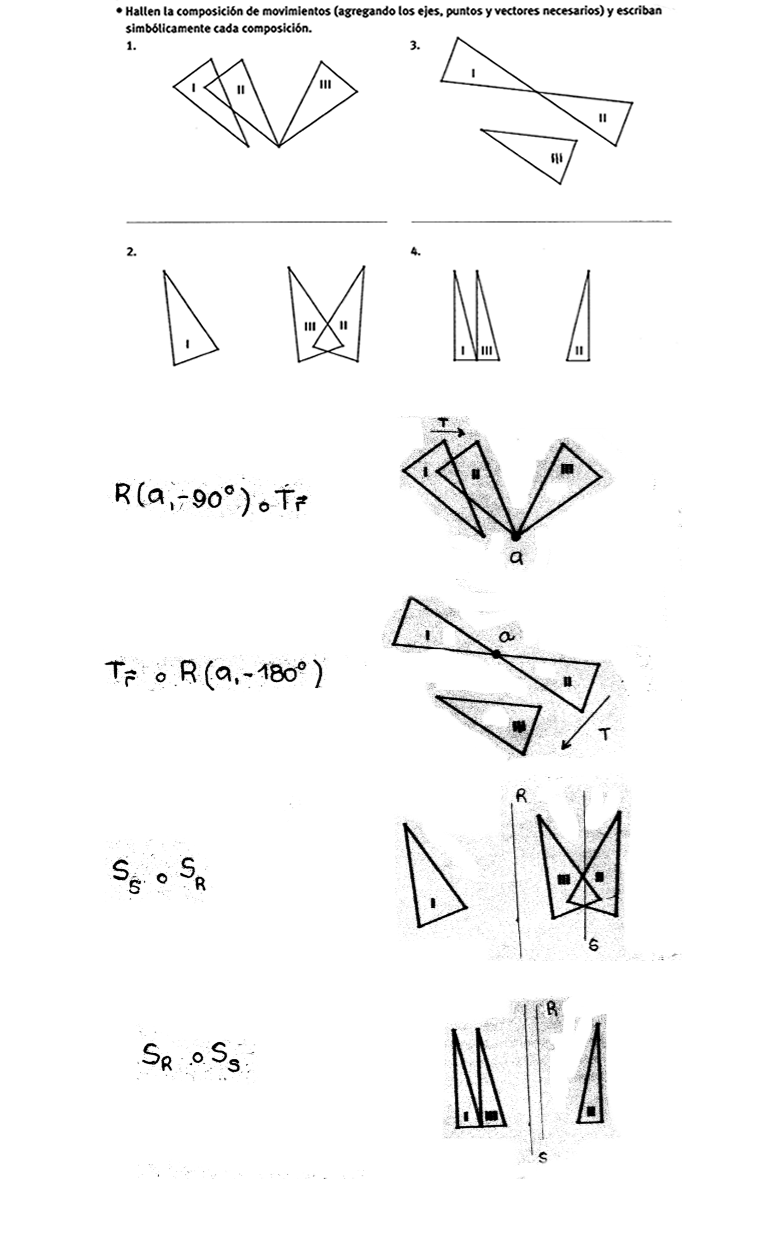 • Hallen la composición de movimientos (agregando los ejes, puntos y vectores necesarios) y escriban
simbólicamente cada composición.
1.
I
II
III
3.
I
II
III
2.
I
III
II
4.
I
III
II
R(a,-90°) ∘ T_r⃗
T
I
II
III
a
T_r⃗ ∘ R(a,-180°)
I
a
II
III
T
S_S ∘ S_R
R
I
III
II
S
S_R ∘ S_S
R
I
III
II
S